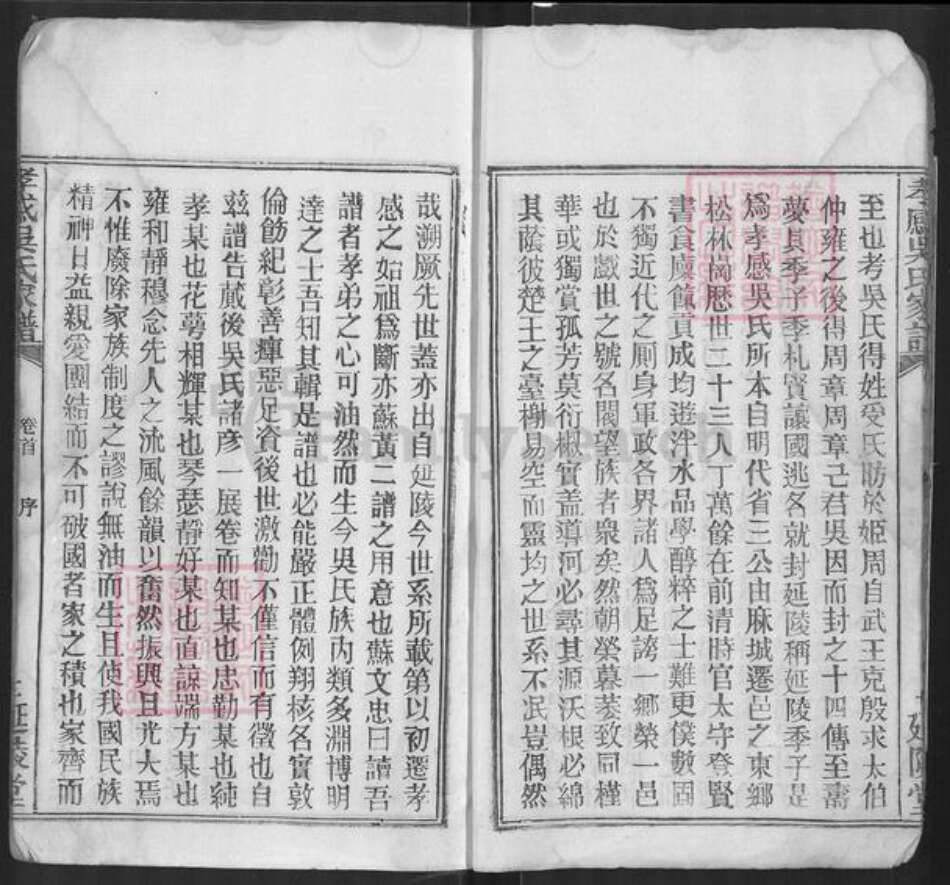 孝感吳氏家譜
至也考吳氏得姓受氏昉於姬周自武王克殷求太伯
仲雍之後得周章周章已君吳因而封之十四傳至壽
夢其季子季札賢讓國逃名就封延陵稱延陵季子是
爲孝感吳氏所本自明代省三公由麻城遷邑之東鄉
松林崗歷世二十三人丁萬餘在前清時官太守登賢
書食廩餼貢成均遊泮水品學醇粹之士難更僕數固
不獨近代之厠身軍政各界諸人爲足誇一鄉榮一邑
也於戲世之號名閥望族者衆矣然朝榮暮萎致同槿
華或獨賞孤芳莫衍椒實盖導河必尋其源沃根必綿
其蔭彼楚王之臺榭易空而靈均之世系不泯豈偶然
延陵堂
哉溯厥先世蓋亦出自延陵今世系所載第以初遷孝
感之始祖爲斷亦蘇黃二譜之用意也蘇文忠曰讀吾
譜者孝弟之心可油然而生今吳氏族內類多淵博明
達之士吾知其輯是譜也必能嚴正體例翔核名實敦
倫飭紀彰善癉惡足資後世激勸不僅信而有徵也自
玆譜告蕆後吳氏諸彥一展卷而知某也忠勤某也純
孝某也花萼相輝某也琴瑟靜好某也直諒端方某也
雍和靜穆念先人之流風餘韻以奮然振興且光大焉
不惟廢除家族制度之謬說無油而生且使我國民族
精神日益親愛團結而不可破國者家之積也家齊而
孝感吳氏家譜
卷首
序
延陵堂